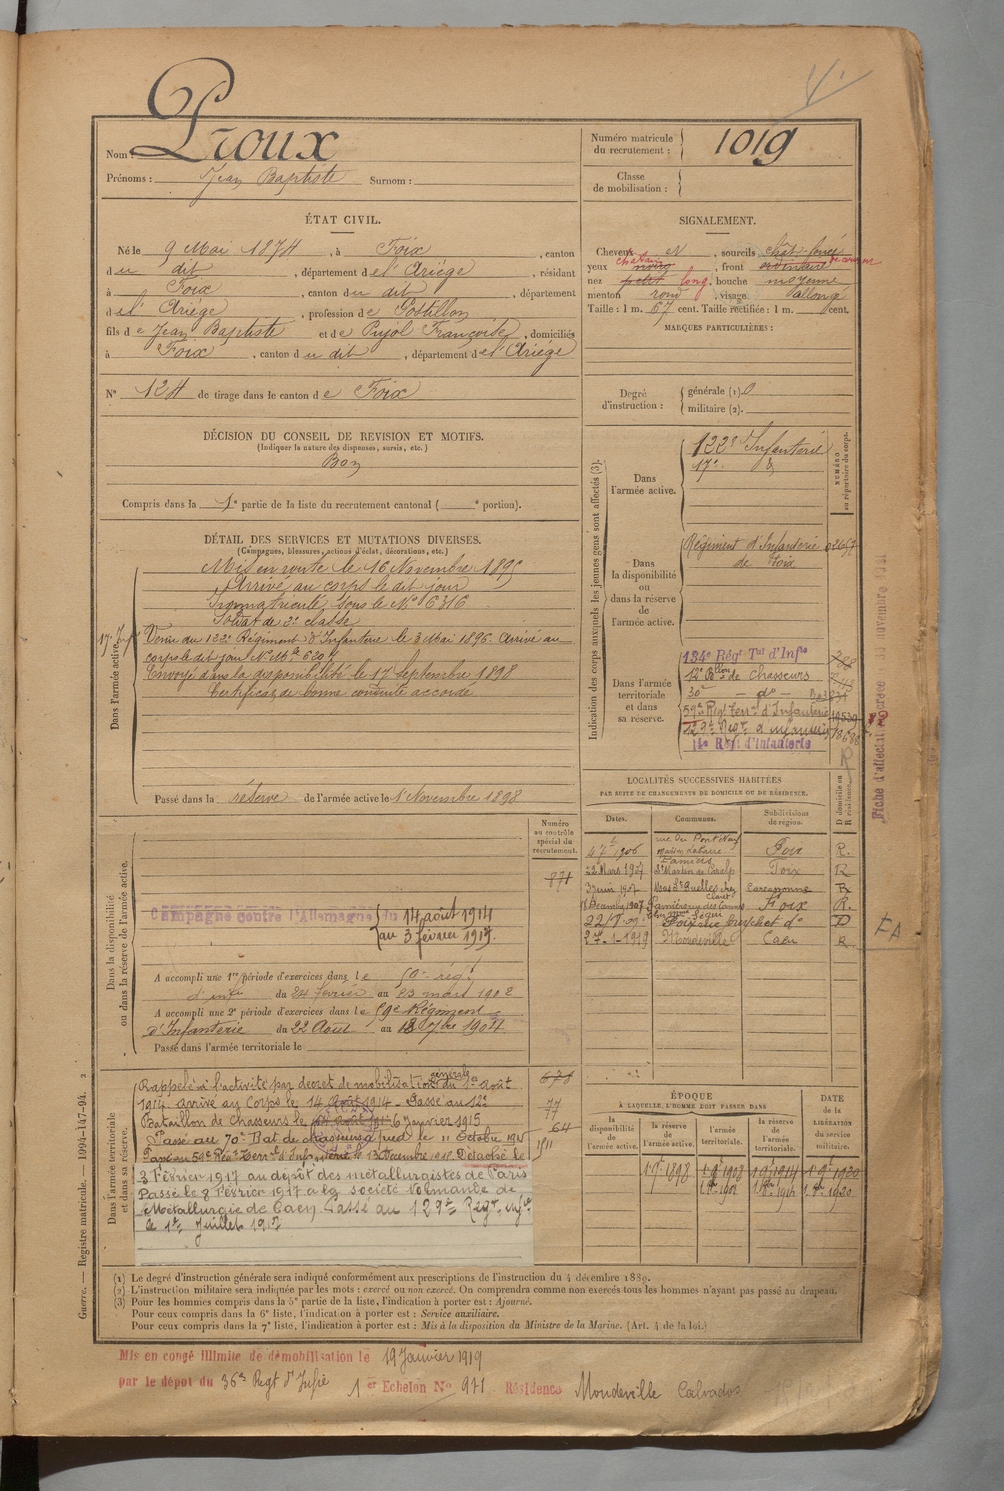 Nom : Proux
Prénoms : Jean Baptiste Surnom :
Numéro matricule du recrutement : 1019
Classe de mobilisation :
ÉTAT CIVIL.
Né le 9 Mai 1874, à Foix, canton
du dit, département de l'Ariége, résidant
à Foix, canton du dit, département
de l'Ariége, profession de Postillon
fils de Jean Baptiste et de Pujol Françoise, domiciliés
à Foix, canton du dit, département de l'Ariége
N° 124 de tirage dans le canton de Foix
SIGNALEMENT.
Cheveux, sourcils chât-foncé
yeux châtain, front ordinaire
nez petit long, bouche moyenne
menton rond, visage allongé
Taille : 1 m. 67 cent. Taille rectifiée : 1 m. cent.
MARQUES PARTICULIÈRES :
Degré d'instruction :
générale (1) 0
militaire (2).
DÉCISION DU CONSEIL DE REVISION ET MOTIFS.
(Indiquer la nature des dispenses, sursis, etc.)
Bon
Compris dans la 1e partie de la liste du recrutement cantonal ( e portion).
DÉTAIL DES SERVICES ET MUTATIONS DIVERSES.
(Campagnes, blessures, actions d'éclat, décorations, etc.)
Dans l'armée active.
Mis en route le 16 Novembre 1895
Arrivé au corps le dit jour
Immatriculé sous le N° 6316
Soldat de 2e classe
Venu du 122e Régiment d'Infanterie le 3 Mai 1896 Arrivé au
corps le dit jour N° Mle 6204
Envoyé dans la disponibilité le 17 Septembre 1898
Certificat de bonne conduite accordé
Passé dans la réserve de l'armée active le 1 Novembre 1898
Indication des corps auxquels les jeunes gens sont affectés (3).
NUMÉRO au répertoire du corps.
Dans l'armée active.
122e Infanterie
17e
Dans la disponibilité ou dans la réserve de l'armée active.
Régiment d'Infanterie
de Foix
Dans l'armée territoriale et dans sa réserve.
134e Régt Tal d'Infie
12e Bllon de Chasseurs
30e — do —
59e Regt Terr. d'Infanterie
129e Regt d'infanterie
Fiche d'affectat
novembre
LOCALITÉS SUCCESSIVES HABITÉES
PAR SUITE DE CHANGEMENTS DE DOMICILE OU DE RÉSIDENCE.
D domicile ou R résidence.
Dates. Communes. Subdivisions de région.
1906 rue du Pont Neuf Foix R.
22 Mars 1907 St Martin de Caralp Foix R
3 Juin 1907 Carcassonne R
Décembre 1907 Foix R.
D
27-1-1919 Mondeville Caen R
Numéro au contrôle spécial du recrutement.
871
Dans la disponibilité ou dans la réserve de l'armée active.
Campagne contre l'Allemagne du 14 août 1914
au 3 février 1917.
A accompli une 1re période d'exercices dans le 59e régt
d'infie du 24 février au 23 mars 1902
A accompli une 2e période d'exercices dans le 59e Régiment
d'Infanterie du 22 Août au 18 7bre 1904
Passé dans l'armée territoriale le
Dans l'armée territoriale et dans sa réserve.
Rappelé à l'activité par décret de mobilisation générale du 1er août
1914 arrivé au Corps le 14 Août 1914 - Passé au 12e
Bataillon de Chasseurs le 6 Janvier 1915
Passé au 70e Bat de chasseurs à pied le 11 Octobre 1915
Passé au 59e Regt Terr. d'Infanterie le 13 Décembre Détaché le
3 Février 1917 au dépôt des métallurgistes de Paris
Passé le 8 Février 1917 à la Société Normande de
Métallurgie de Caen Passé au 129e Regt. Infie
le 1er Juillet 1917
77
64
1911
ÉPOQUE
À LAQUELLE L'HOMME DOIT PASSER DANS
DATE de la LIBÉRATION du service militaire.
la disponibilité de l'armée active. la réserve de l'armée active. l'armée territoriale. la réserve de l'armée territoriale.
1898 1908 1914 1920
(1) Le degré d'instruction générale sera indiqué conformément aux prescriptions de l'instruction du 4 décembre 1889.
(2) L'instruction militaire sera indiquée par les mots : exercé ou non exercé. On comprendra comme non exercés tous les hommes n'ayant pas passé au drapeau.
(3) Pour les hommes compris dans la 5e partie de la liste, l'indication à porter est : Ajourné.
Pour ceux compris dans la 6e liste, l'indication à porter est : Service auxiliaire.
Pour ceux compris dans la 7e liste, l'indication à porter est : Mis à la disposition du Ministre de la Marine. (Art. 4 de la loi.)
Guerre. — Registre matricule. — 1994-147-94. 2
Mis en congé illimité de démobilisation le 19 Janvier 1919
par le dépôt du 36e Regt d'Infie 1er Echelon N° 971 Résidence Mondeville Calvados